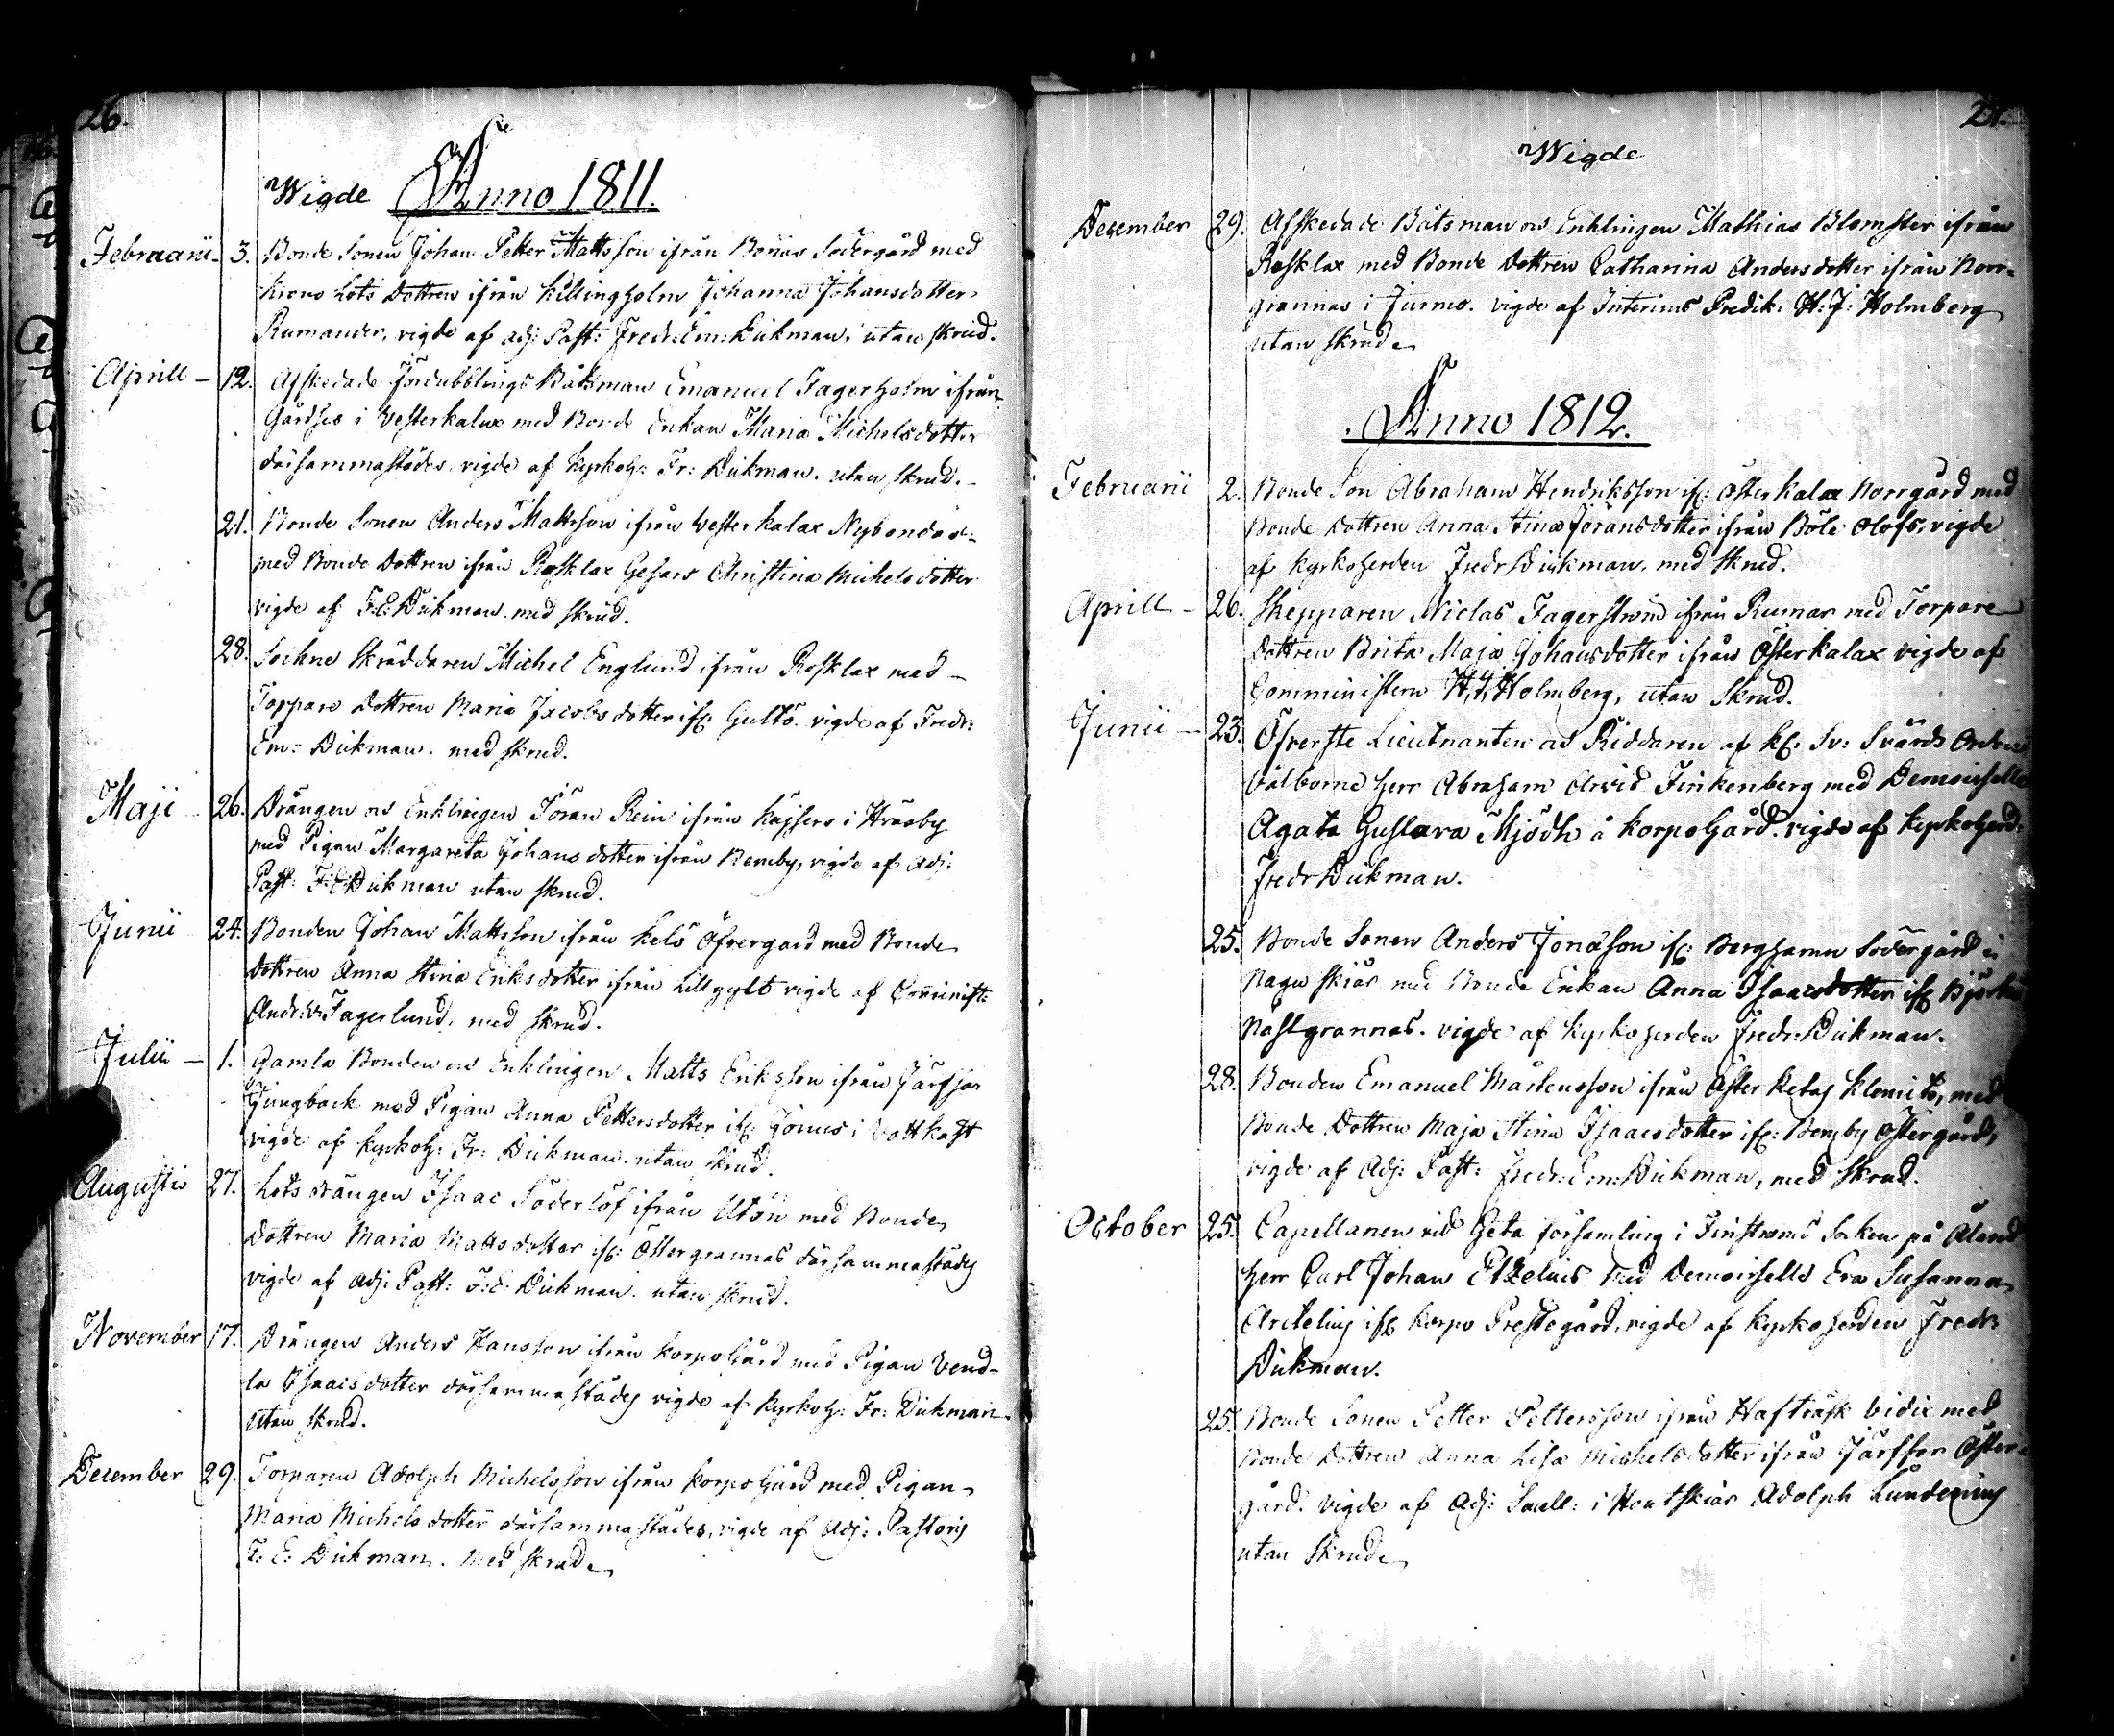 26.
Wigde Anno 1811.
Februarii - 3. Bonde Sonen Johan Petter Mattsson ifrån Bonäs Södergård med
Krono Lots Dottren ifrån Källingholm Johanna Johansdotter
Rumander, vigde af adj: Past: Fredr: Em: Dickman, utan skrud.
Aprill - 12. Afskedade Fördubblings Båtsman Emanuel Fagerholm ifrån
Gårdses i Vesterkalax med Bonde Enkan Maria Michelsdotter
därsammastädes, vigde af Kyrkoh: Fr: Dickman. utan skrud.
21. Bonde Sonen Anders Mattsson ifrån Vesterkalax Nybondas
med Bonde Dottren ifrån Rosklax Christina Michelsdotter
vigde af F: E: Dickman. med skrud.
28. Sockne Skräddaren Michel Englund ifrån Rosklax med
Torpare Dottren Maria Jacobsdotter ifr: Gultö. vigde af Fredr:
Em: Dickman. med skrud.
Maji - 26. Drängen och Enklingen Jöran Rein ifrån Kajsers i
med Pigan Margareta Johansdotter ifrån Bemby, vigde af Adj:
Past: F: E: Dickman utan skrud.
Junii 24. Bonden Johan Mattsson ifrån Kelö Öfvergård med Bonde
Dottren Anna Stina Eriksdotter ifrån Lillgylt vigde af Comminist:
Andr: Fagerlund, med skrud.
Julii - 1. Gamla Bonden och Enklingen Matts Eriksson ifrån Järfsor
med Pigan Anna Pettersdotter ifr: Jonus i Vattkast
vigde af Kyrkoh: Fr: Dickman. utan skrud.
Augusti 27. Lots drängen Isaac Söderlöf ifrån Utön med Bonde
Dottren Maria Mattsdotter ifr: Östergrannas därsammastädes
vigde af Adj: Past: F: E: Dickman. utan skrud.
November 17. Drängen Anders Hansson ifrån Korpo Gård med Pigan Vend-
la Isaacsdotter därsammastädes vigde af Kyrkoh: Fr: Dickman
utan skrud.
December 29. Torparen Adolph Michelsson ifrån Korpo Gård med Pigan
Maria Michelsdotter därsammastädes, vigde af Adj: Pastoris
F: E: Dickman. med skrud.
27.
Wigde
December 29. Afskedade Båtsman och Enklingen Mathias Blomster ifrån
Rosklax med Bonde Dottren Catharina Andersdotter ifrån Norr-
grannas i Jurmo. vigde af Interims Predik: H: J: Holmberg
utan skrud.
Anno 1812.
Februarii 2. Bonde Son Abraham Hendriksson ifr: Österkalax Norrgård med
Bonde Dottren Anna Stina Jöransdotter ifrån Böle Olofs, vigde
af Kyrkoherden Fredr Dickman, med skrud.
Aprill - 26. Skepparen Niclas Fagerström ifrån Rumar med Torpare
Dottren Brita Maja Johansdotter ifrån Österkalax vigde af
Comministern H: J: Holmberg, utan skrud.
Junii - 23. Öfverste Lieutnanten och Riddaren af K: Sv: Svärds Orden
Välborne Herr Abraham Arvid Finkenberg med Demoiselle
Agata Gustava Mjödh å Korpo Gård. vigde af Kyrkoherd:
Fredr Dickman.
25. Bonde Sonen Anders Jonasson ifr: Berghamn Södergård i
Nagu skiär med Bonde Enkan Anna Isaacsdotter ifr: Björkö
Nästgrannas. vigde af Kyrkoherden Fredr: Dickman.
28. Bonden Emanuel Mårtensson ifrån Öster Retais Klemets, med
Bonde Dottren Maja Stina Isaacsdotter ifr: Bemby Östergård,
vigde af Adj: Past: Fredr: Em: Dickman, med skrud.
October 25. Capellanen vid Geta församling i Finströms Socken på Åland
Herr Carl Johan Etzelius med Demoiselle Eva Susanna
Arctelius ifr: Korpo Prestegård, vigde af Kyrkoherden Fredr:
Dickman.
25. Bonde Sonen Petter Pettersson ifrån Hafträsk Vidix med
Bonde Dottren Anna Lisa Michelsdotter ifrån Järfsor Öster-
gård. vigde af Adj: Sacell: i Houtskiär Adolph Lundenius
utan skrud.